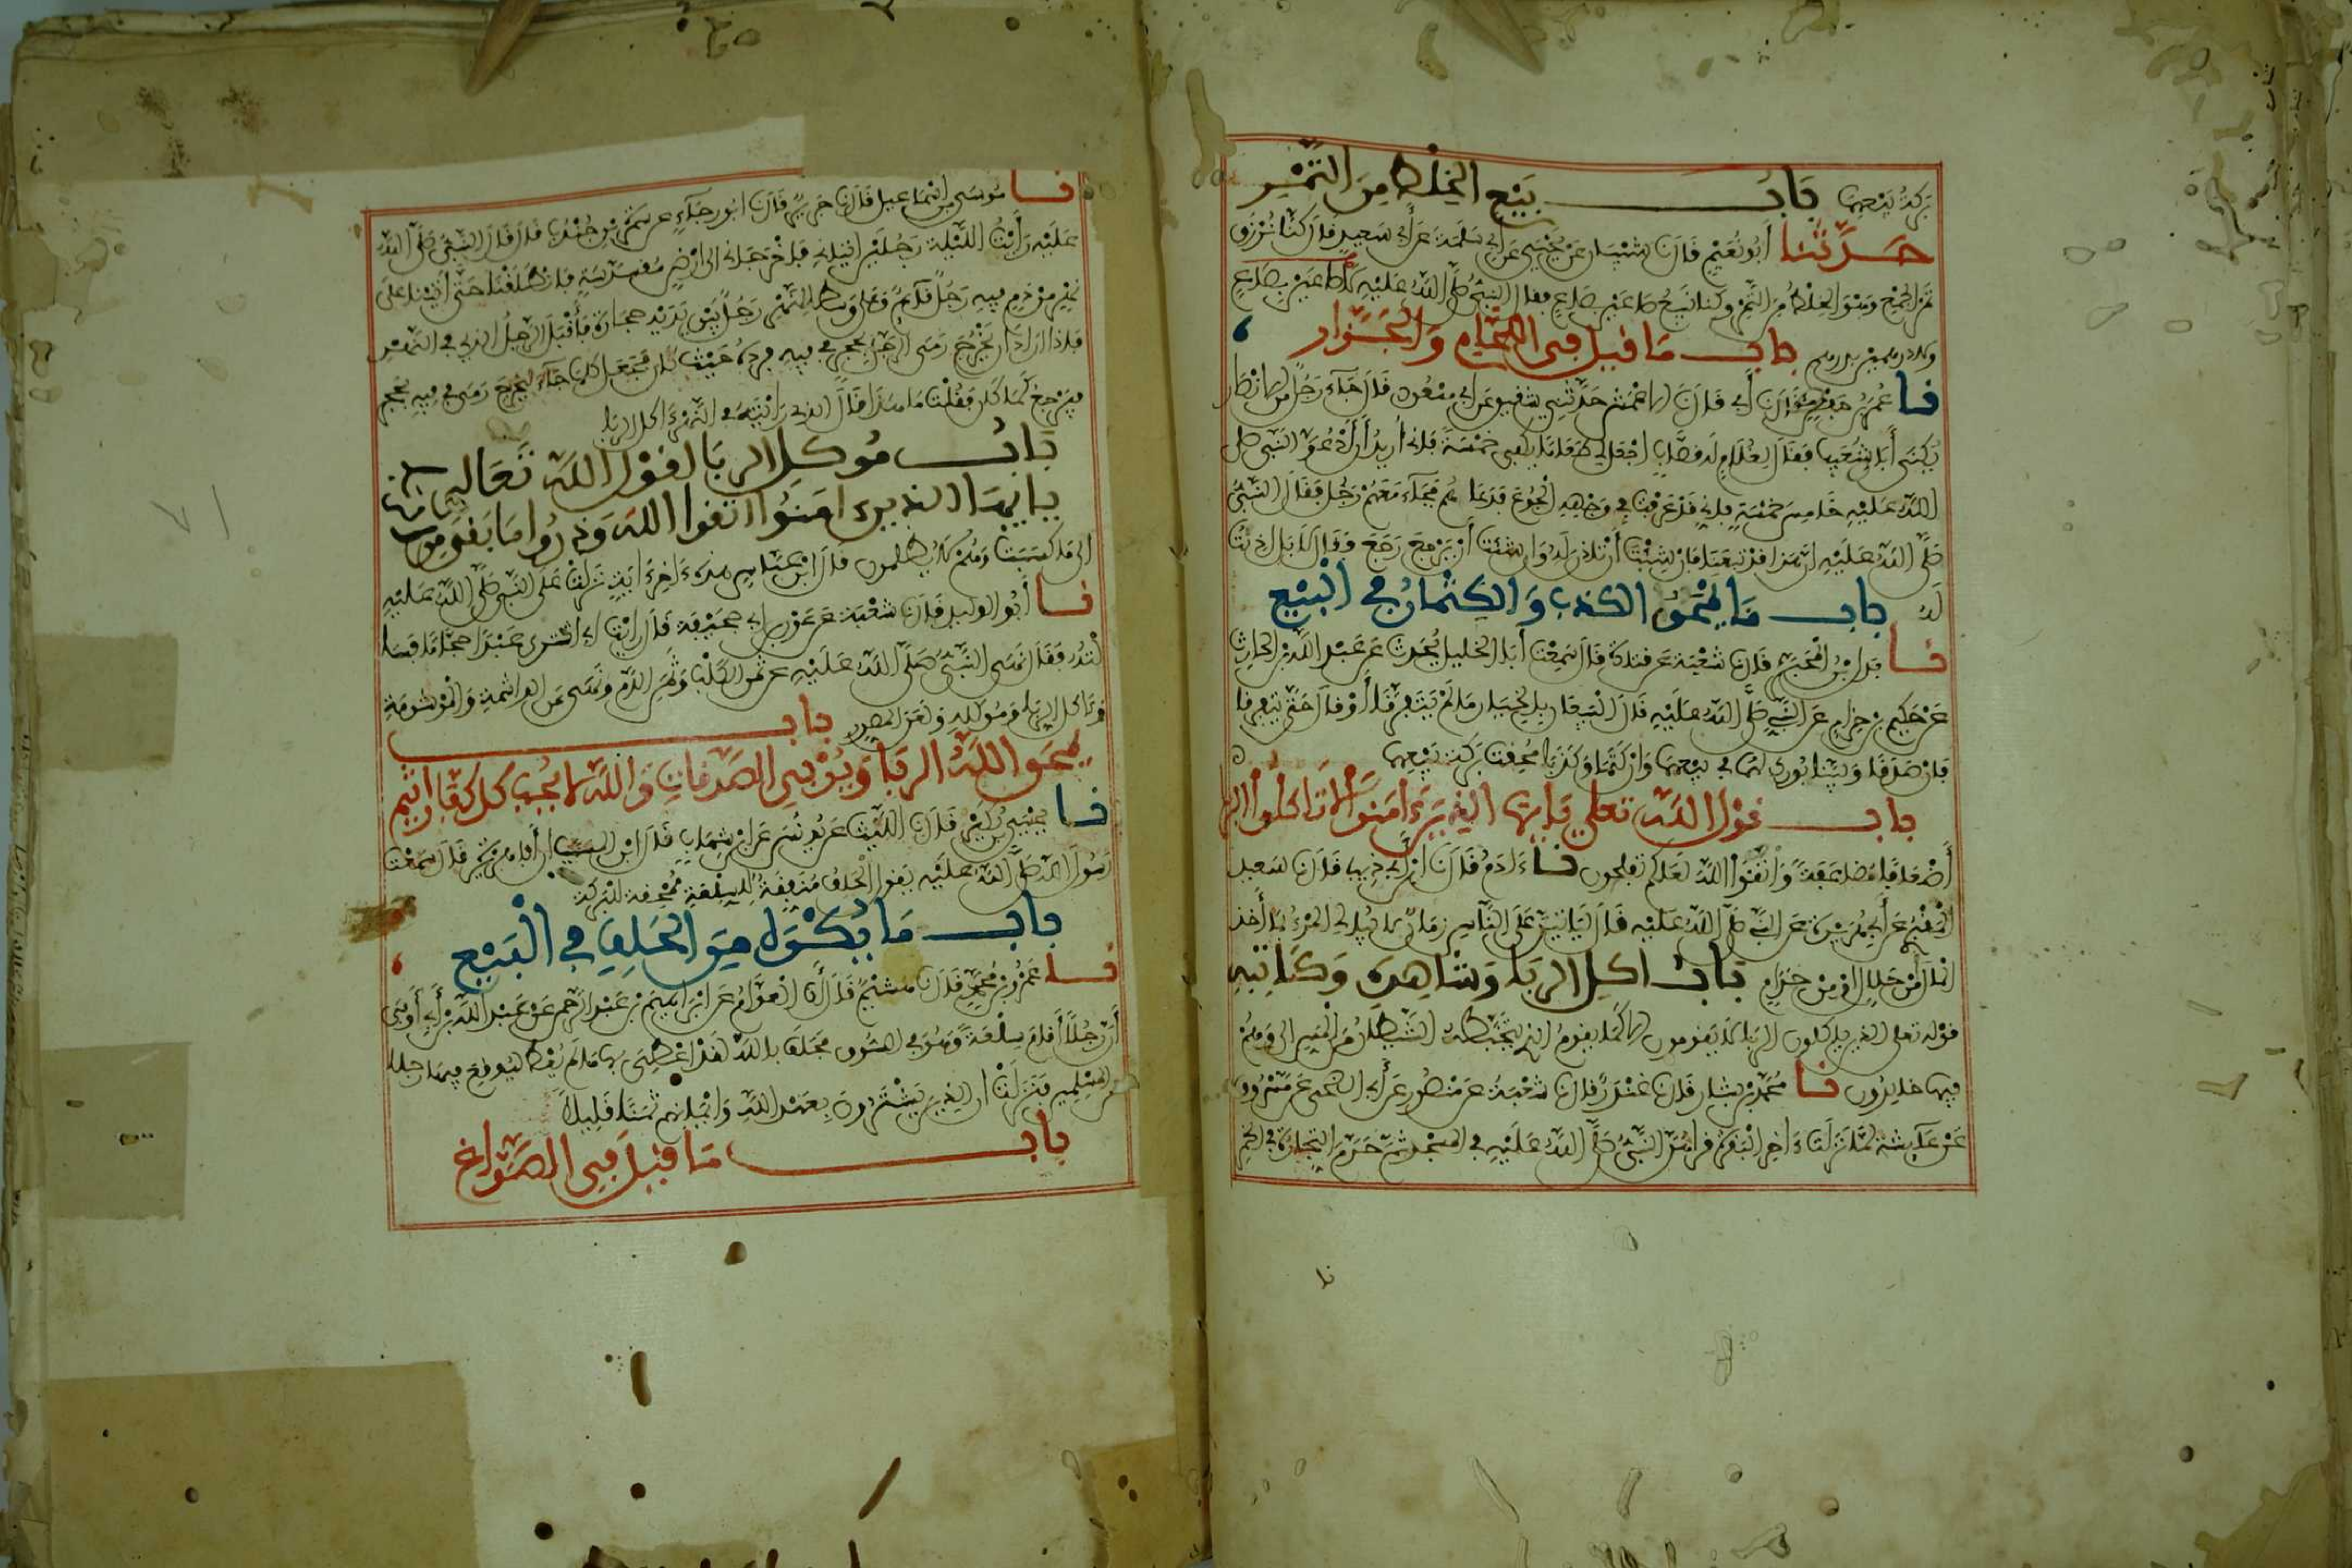 بركة بيعهما باب بيع الخلط من التمر
حدثنا أبو نعيم قال نا شيبان عن يحيى عن أبي سلمة عن أبي سعيد قال كنا نرزق
تمر الجمع وهو الخلط من التمر وكنا نبيع صاعين بصاع فقال النبي صلى الله عليه لا صاعين بصاع
ولا درهمين بدرهم باب ما قيل في اللحام والجزار
نا عمر بن حفص قال نا أبي قال نا الاعمش حدثني شقيق عن أبي مسعود قال جاء رجل من الانصار
يكنى أبا شعيب فقال لغلام له قصاب اجعل لي طعاما يكفي خمسة فإني أريد أن أدعو النبي صلى
الله عليه خامس خمسة فإني قد عرفت في وجهه الجوع فدعاهم فجاء معهم رجل فقال النبي
صلى الله عليه إن هذا قد تبعنا فإن شئت أن تأذن له وإن شئت أن يرجع رجع فقال لا بل اذنت
له باب ما يمحق الكذب والكتمان في البيع
نا بدل بن المحبر قال نا شعبة عن قتادة قال سمعت أبا الخليل يحدث عن عبد الله بن الحارث
عن حكيم بن حزام عن النبي صلى الله عليه قال البيعان بالخيار ما لم يتفرقا أو قال حتى يتفرقا
فإن صدقا وبينا بورك لهما في بيعهما وإن كتما وكذبا محقت بركة بيعهما
باب قول الله تعلى يايها الذين ءامنوا لا تاكلوا الربا
أضعافا مضاعفة واتقوا الله لعلكم تفلحون نا ءادم قال نا ابن أبي ذيب قال نا سعيد
المقبري عن أبي هريرة عن النبي صلى الله عليه قال لياتين على الناس زمان لا يبالي المرء بما أخذ
المال أمن حلال ام من حرام باب اكل الربا وشاهده وكاتبه
قوله تعلى الذين ياكلون الربا لا يقومون الا كما يقوم الذي يتخبطه الشيطان من المس الى وهم
فيها خالدون نا محمد بن بشار قال نا غندر قال نا شعبة عن منصور عن أبي الضحى عن مسروق
عن عايشة لما نزلت ءاخر البقرة قراهن النبي صلى الله عليه في المسجد ثم حرم التجارة في الخمر
نا موسى بن اسماعيل قال نا جرير قال نا ابو رجاء عن سمرة بن جندب قال قال النبي صلى الله
عليه رأيت الليلة رجلين اتياني فاخرجاني الى ارض مقدسة فانطلقنا حتى أتينا على
نهر من دم فيه رجل قائم وعلى وسط النهر رجل بين يديه حجارة فأقبل الرجل الذي في النهر
فإذا اراد أن يخرج رمى الرجل بحجر في فيه فرده حيث كان فجعل كلما جاء ليخرج رمى في فيه بحجر
فيرجع كما كان فقلت ما هذا قال الذي رايته في النهر ءاكل الربا
باب موكل الربا لقول الله تعالى
يايها الذين امنوا اتقوا الله وذروا ما بقي من الربا
الى ما كسبت وهم لا يظلمون قال ابن عباس هذه ءاخر ءاية نزلت على النبي صلى الله عليه
نا أبو الوليد قال نا شعبة عن عون بن أبي جحيفة قال رايت أبي اشترى عبدا حجاما فسا
لته فقال نهى النبي صلى الله عليه عن ثمن الكلب وثمن الدم ونهى عن الواشمة والموشومة
وءاكل الربا وموكله ولعن المصور باب
يمحق الله الربا ويربي الصدقات والله لا يحب كل كفار اثيم
نا يحيى بن بكير قال نا الليث عن يونس عن ابن شهاب قال ابن المسيب ان أبا هريرة قال سمعت
رسول الله صلى الله عليه يقول الحلف منفقة للسلعة ممحقة للبركة
باب ما يكره من الحلف في البيع
نا عمرو بن محمد قال نا هشيم قال أنا العوام عن ابراهيم بن عبد الرحمن عن عبد الله بن أبي أوفى
أن رجلا أقام سلعة وهو في السوق فحلف بالله لقد اعطي بها ما لم يعط ليوقع فيها رجلا
من المسلمين فنزلت ان الذين يشترون بعهد الله وايمانهم ثمنا قليلا
باب ما قيل في الصواغ